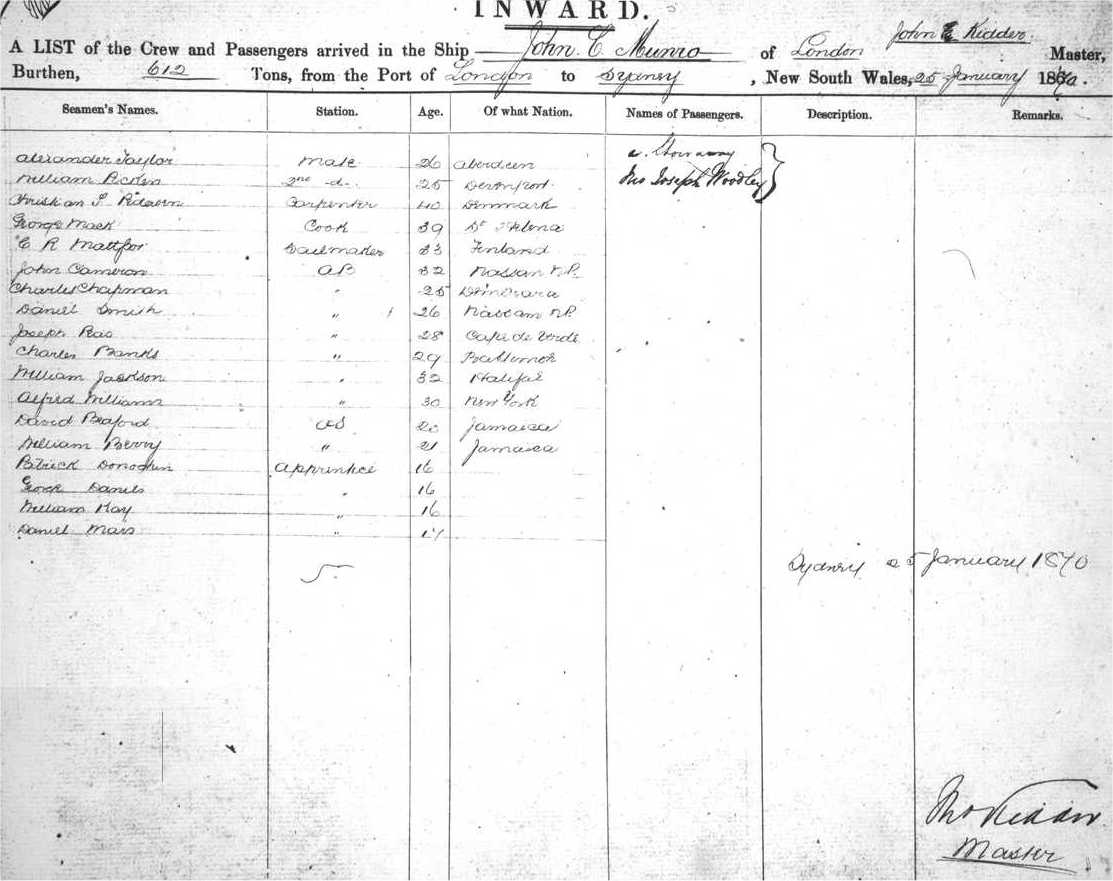 INWARD.
John E Kidder
A LIST of the Crew and Passengers arrived in the Ship John C Munro of London Master,
Burthen, 612 Tons, from the Port of London to Sydney, New South Wales, 25 January 1870.
Seamen's Names. Station. Age. Of what Nation. Names of Passengers. Description. Remarks.
Alexander Taylor Mate 26 Aberdeen a. Stowaway
William 2nd do. 25 Devonport Jno Joseph Woodley
Carpenter 40 Denmark
George Mack Cook 39 St Helena
C R Sailmaker 33 Finland
John Cameron AB 32 Nassau N.P.
Charles Chapman " 25 Demerara
Daniel Smith " 26 Nassau N.P.
Joseph " 28 Cape de Verde
Charles Banks " 29
William Jackson " 32 Halifax
Alfred Williams " 30 New York
David OS 20 Jamaica
William Berry " 21 Jamaica
Patrick Apprentice 16
Daniels " 16
William " 16
Daniel " 17
Sydney 25 January 1870
Jno Kidder
Master